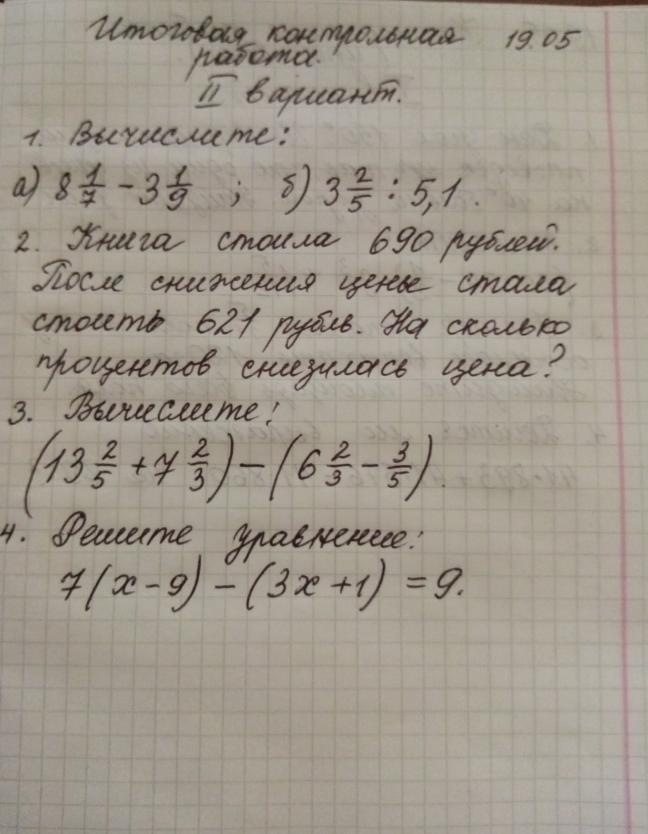 Итоговая контрольная 19.05
работа.
II вариант.
1. Вычислите:
а) 8 1/7 - 3 1/9 ; б) 3 2/5 : 5,1.
2. Книга стоила 690 рублей.
После снижения цены стала
стоить 621 рубль. На сколько
процентов снизилась цена?
3. Вычислите:
(13 2/5 + 7 2/3) - (6 2/3 - 3/5).
4. Решите уравнение:
7(x-9) - (3x+1) = 9.